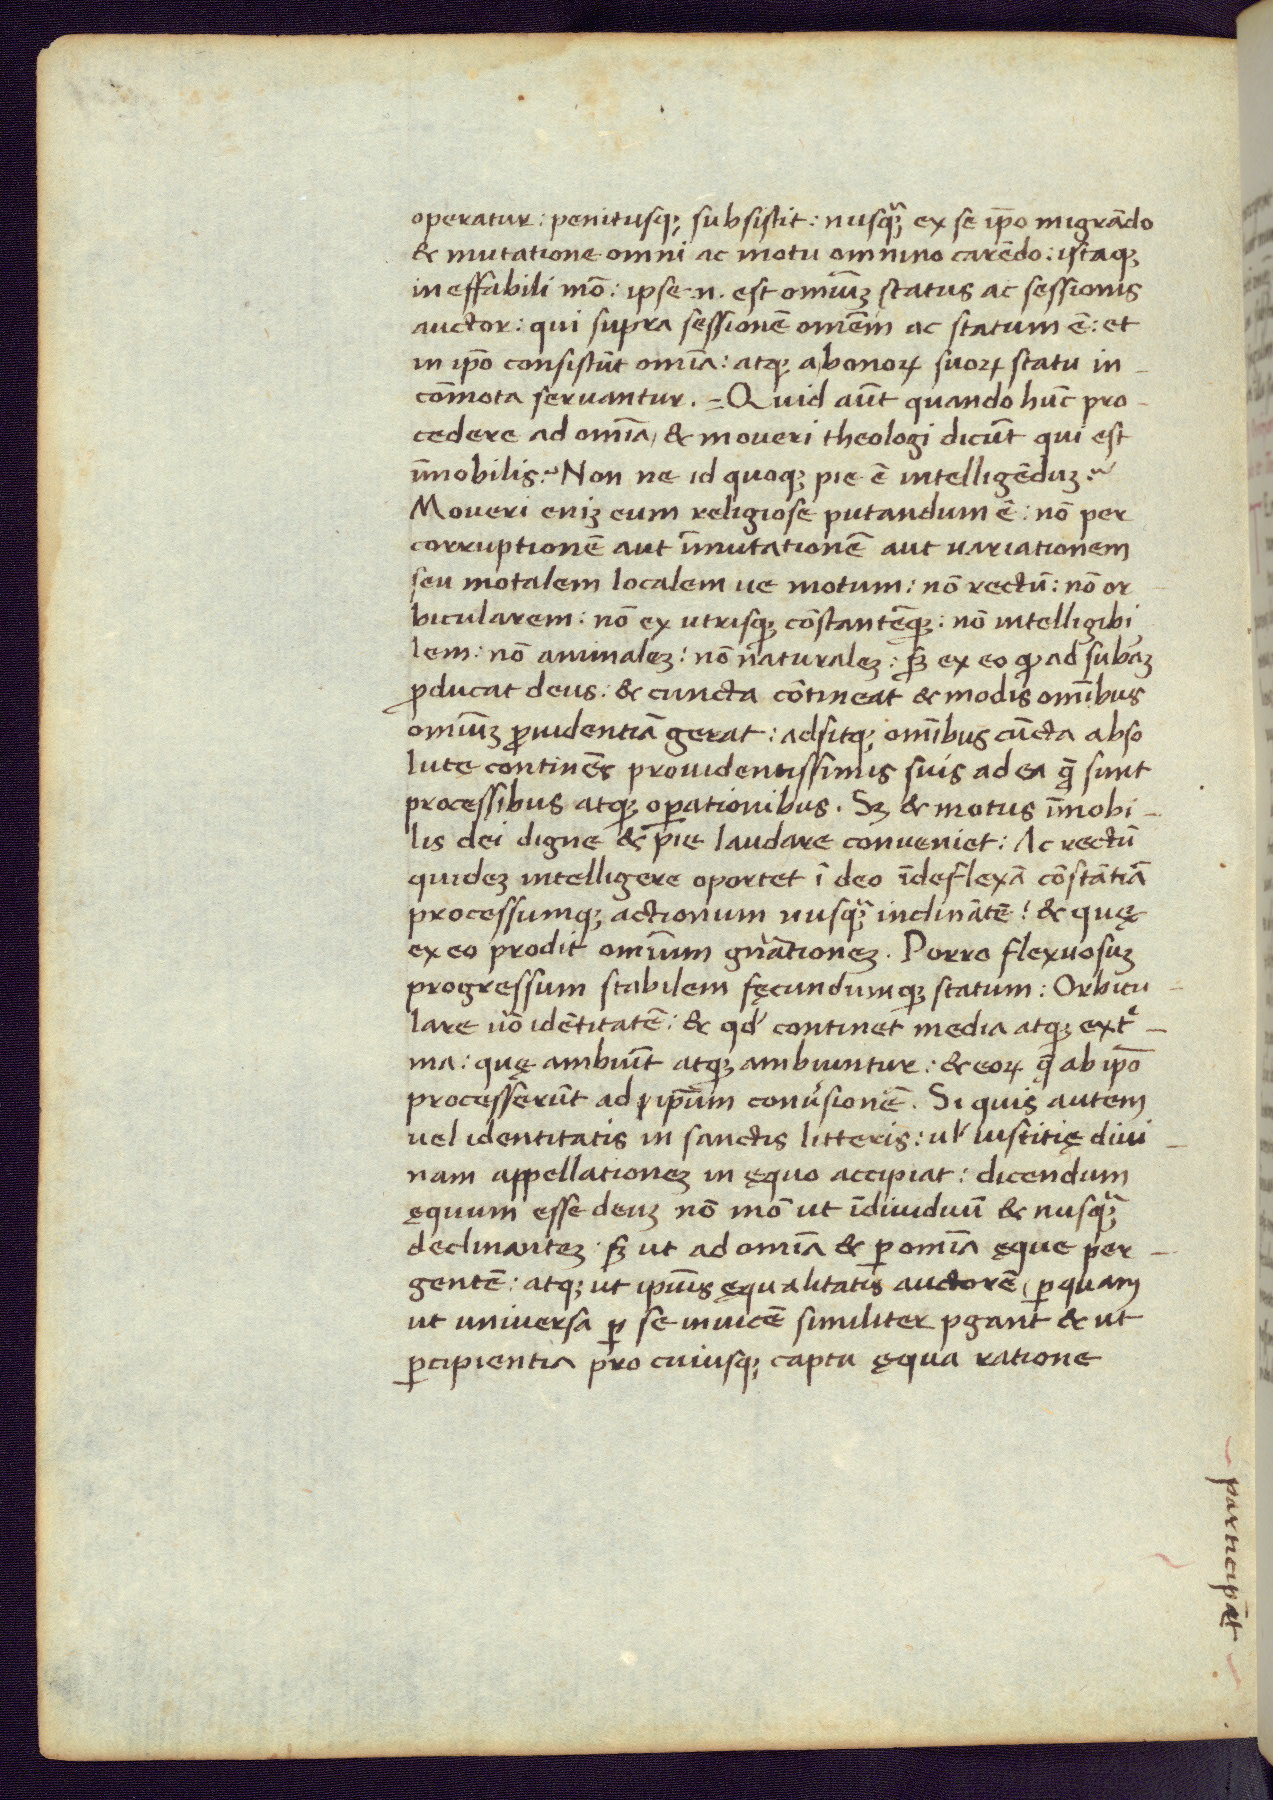 operatur: penitusqꝫ subsistit: nusq̃ꝫ ex se ip̄o migrādo
& mutatione omni ac motu omnino carēdo: istaqꝫ
ineffabili mō: ipse .n. est omīuꝫ status ac sessionis
auctor: qui supra sessionē omēm ac statum ē: et
in ip̄o consistūt omīa: atqꝫ a bonoꝝ suoꝝ statu in-
cōmota seruantur. = Quid aūt quando hūc pro-
cedere ad omīa, & moueri theologi dicūt qui est
īmobilis:~ Non ne id quoqꝫ pie ē intelligēduꝫ:~
Moueri eniꝫ eum religiose putandum ē: nō per
corruptionē aut īmutationē aut uariationem
seu motalem localem ue motum: nō rectū: nō or
bicularem: nō ex utrisqꝫ cōstantēqꝫ: nō intelligibi
lem: nō animaleꝫ: nō naturaleꝫ: sꝫ ex eo ꝙ ad subāꝫ
ꝓducat deus: & cuncta cōtineat & modis omībus
omīuꝫ ꝓuidentiā gerat: adsitqꝫ omībus cūcta abso
lute continēs prouidentissimis suis ad ea q̄ sunt
processibus atqꝫ oꝑationibus. Sꝫ & motus īmobi-
lis dei digne & pie laudare conueniet: Ac rectū
quideꝫ intelligere oportet ī deo īdeflexā cōstātiā
processumqꝫ actionum nusq̃ꝫ inclinātē: & quę
ex eo prodit omīum gn̄ationeꝫ. Porro flexuosuꝫ
progressum stabilem fęcundumqꝫ statum: Orbicu-
lare ūo idētitatē: & qd' continet media atqꝫ extͥ-
ma: quę ambiūt atqꝫ ambiuntur: & eoꝝ q̄ ab ip̄o
processerūt ad ip̄um conu̓sionē. Si quis autem
uel identitatis in sanctis litteris: ul' iustitię diui-
nam appellationeꝫ in ęquo accipiat: dicendum
ęquum esse deuꝫ nō mō ut īdiuiduū & nusq̃ꝫ
declinanteꝫ sꝫ ut ad omīa & ꝑ omīa ęque per-
gentē: atqꝫ ut ip̄ius ęqualitatis auctorē, ꝑ quam
ut uniuersa ꝑ se inuicē similiter ꝑgant & ut
ꝑcipientia pro cuiusqꝫ captu ęqua ratione
participāt